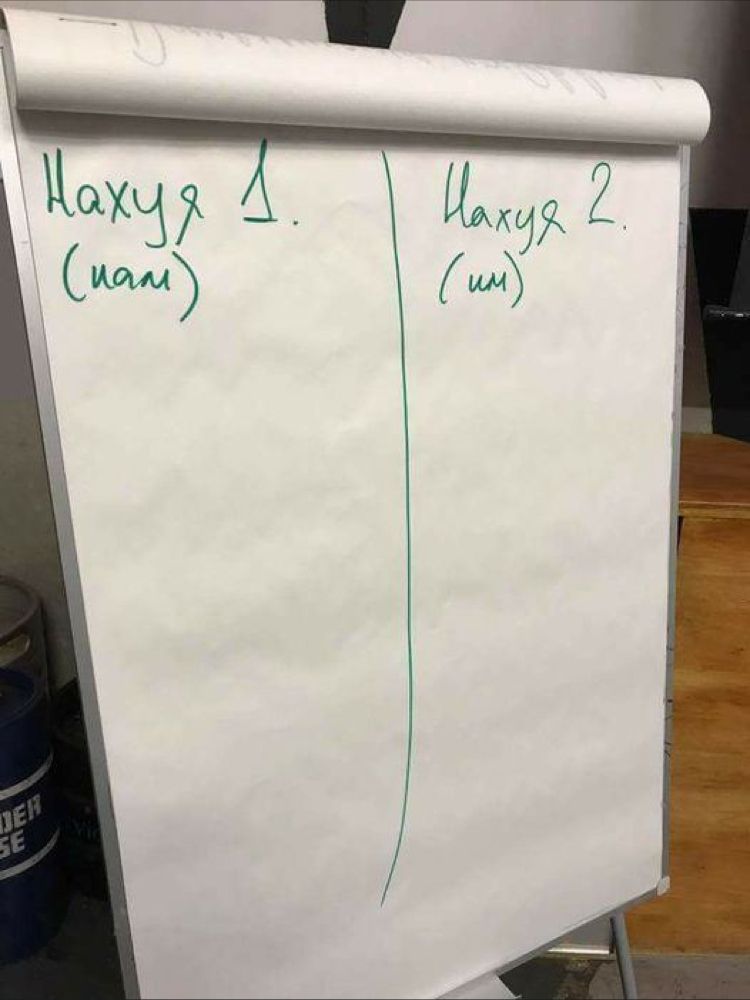 Нахуя 1.
(нам)
Нахуя 2.
(им)
DER
SE